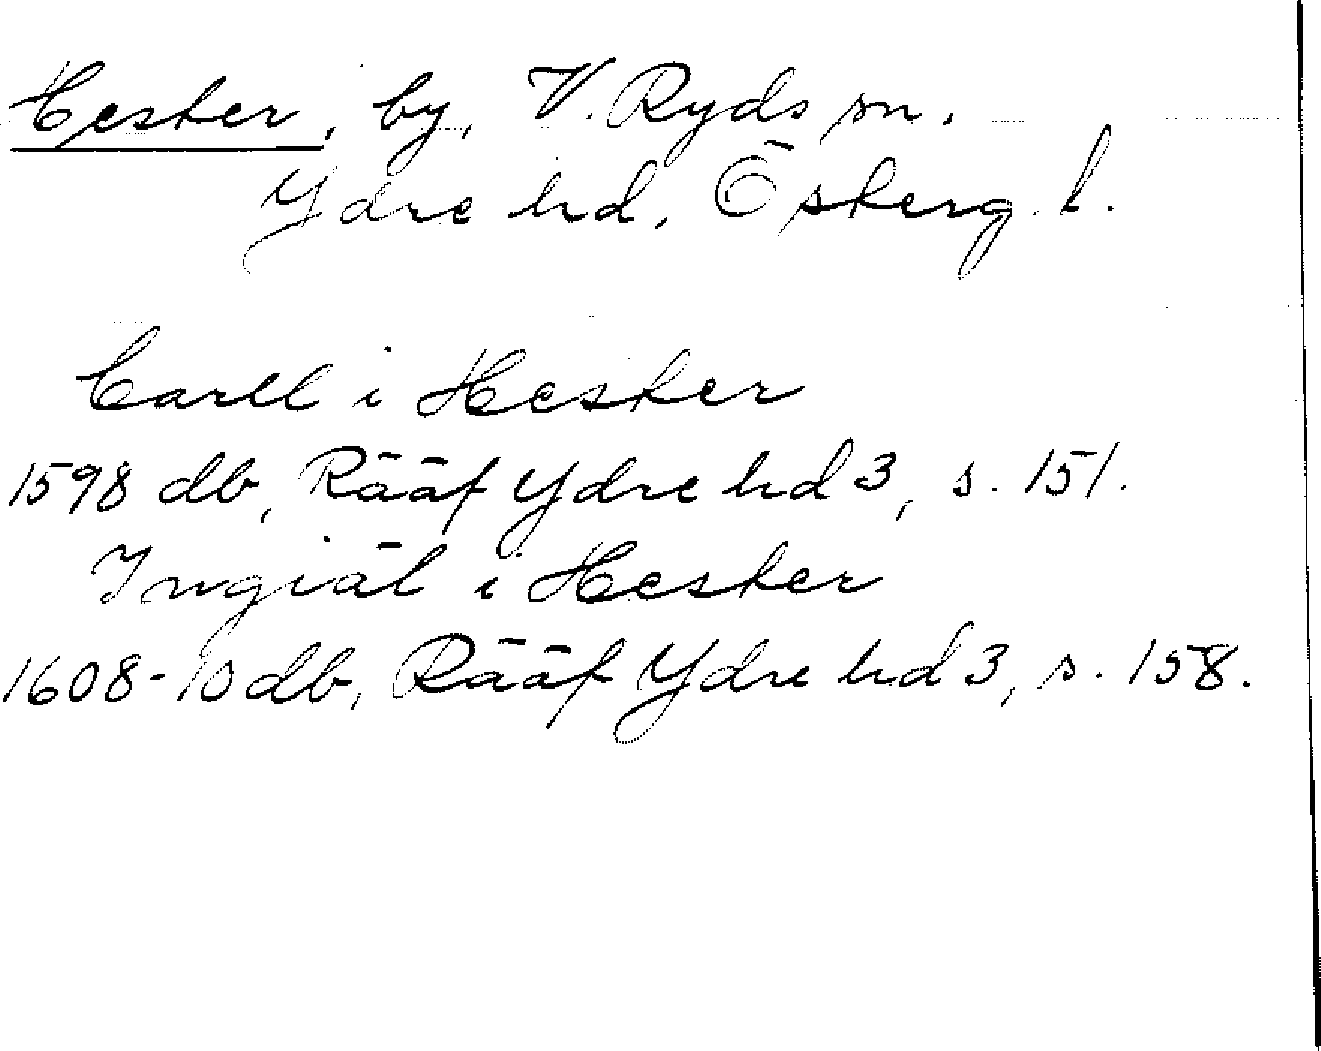 Hester, by, V. Ryds sn.
Ydre hd, Österg. l.
Carll i Hester
1598 db, Rääf Ydre hd 3, s. 151.
Ingiäl i Hester
1608-10 db, Rääf Ydre hd 3, s. 158.